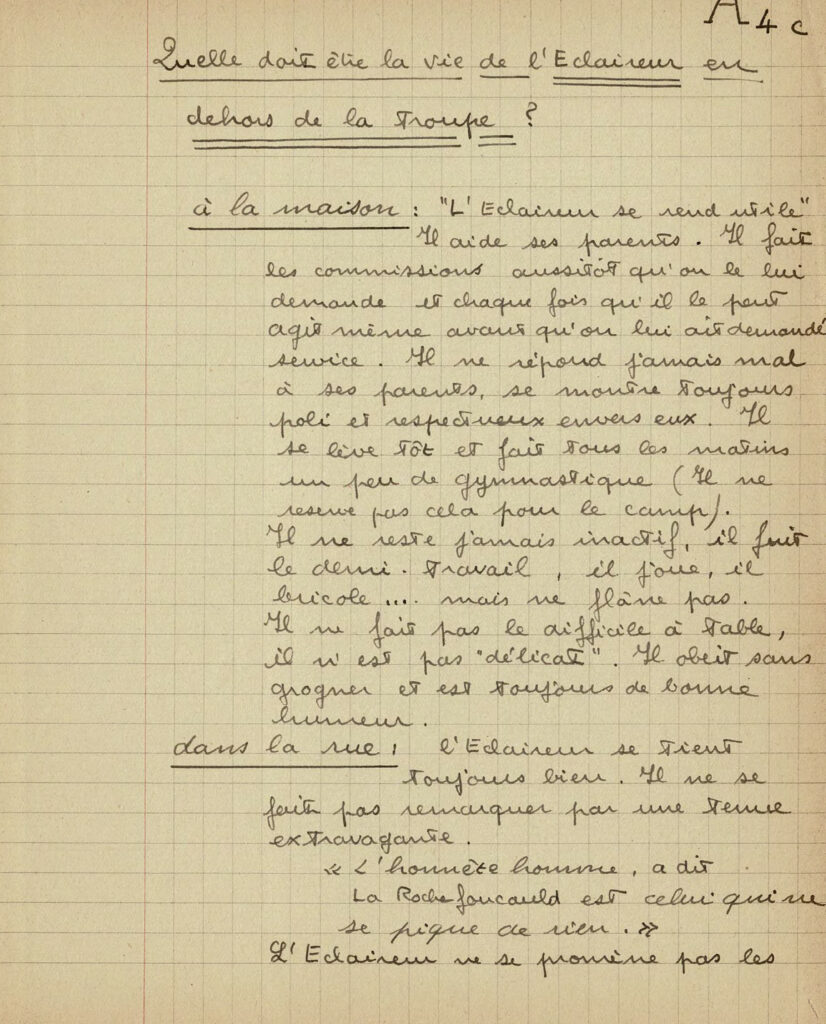 A 4 c
Quelle doit être la vie de l'Eclaireur en
dehors de la troupe ?
à la maison : "L'Eclaireur se rend utile"
Il aide ses parents. Il fait
les commissions aussitôt qu'on le lui
demande et chaque fois qu'il le peut
agit même avant qu'on lui ait demandé
service. Il ne répond jamais mal
à ses parents, se montre toujours
poli et respectueux envers eux. Il
se lève tôt et fait tous les matins
un peu de gymnastique (Il ne
reserve pas cela pour le camp).
Il ne reste jamais inactif, il fuit
le demi-travail, il joue, il
bricole .... mais ne flâne pas.
Il ne fait pas le difficile à table,
il n'est pas "délicat". Il obeit sans
grogner et est toujours de bonne
humeur.
dans la rue : l'Eclaireur se tient
toujours bien. Il ne se
fait pas remarquer par une tenue
extravagante.
« L'honnête homme, a dit
La Rochefoucauld est celui qui ne
se pique de rien. »
L'Eclaireur ne se promène pas les